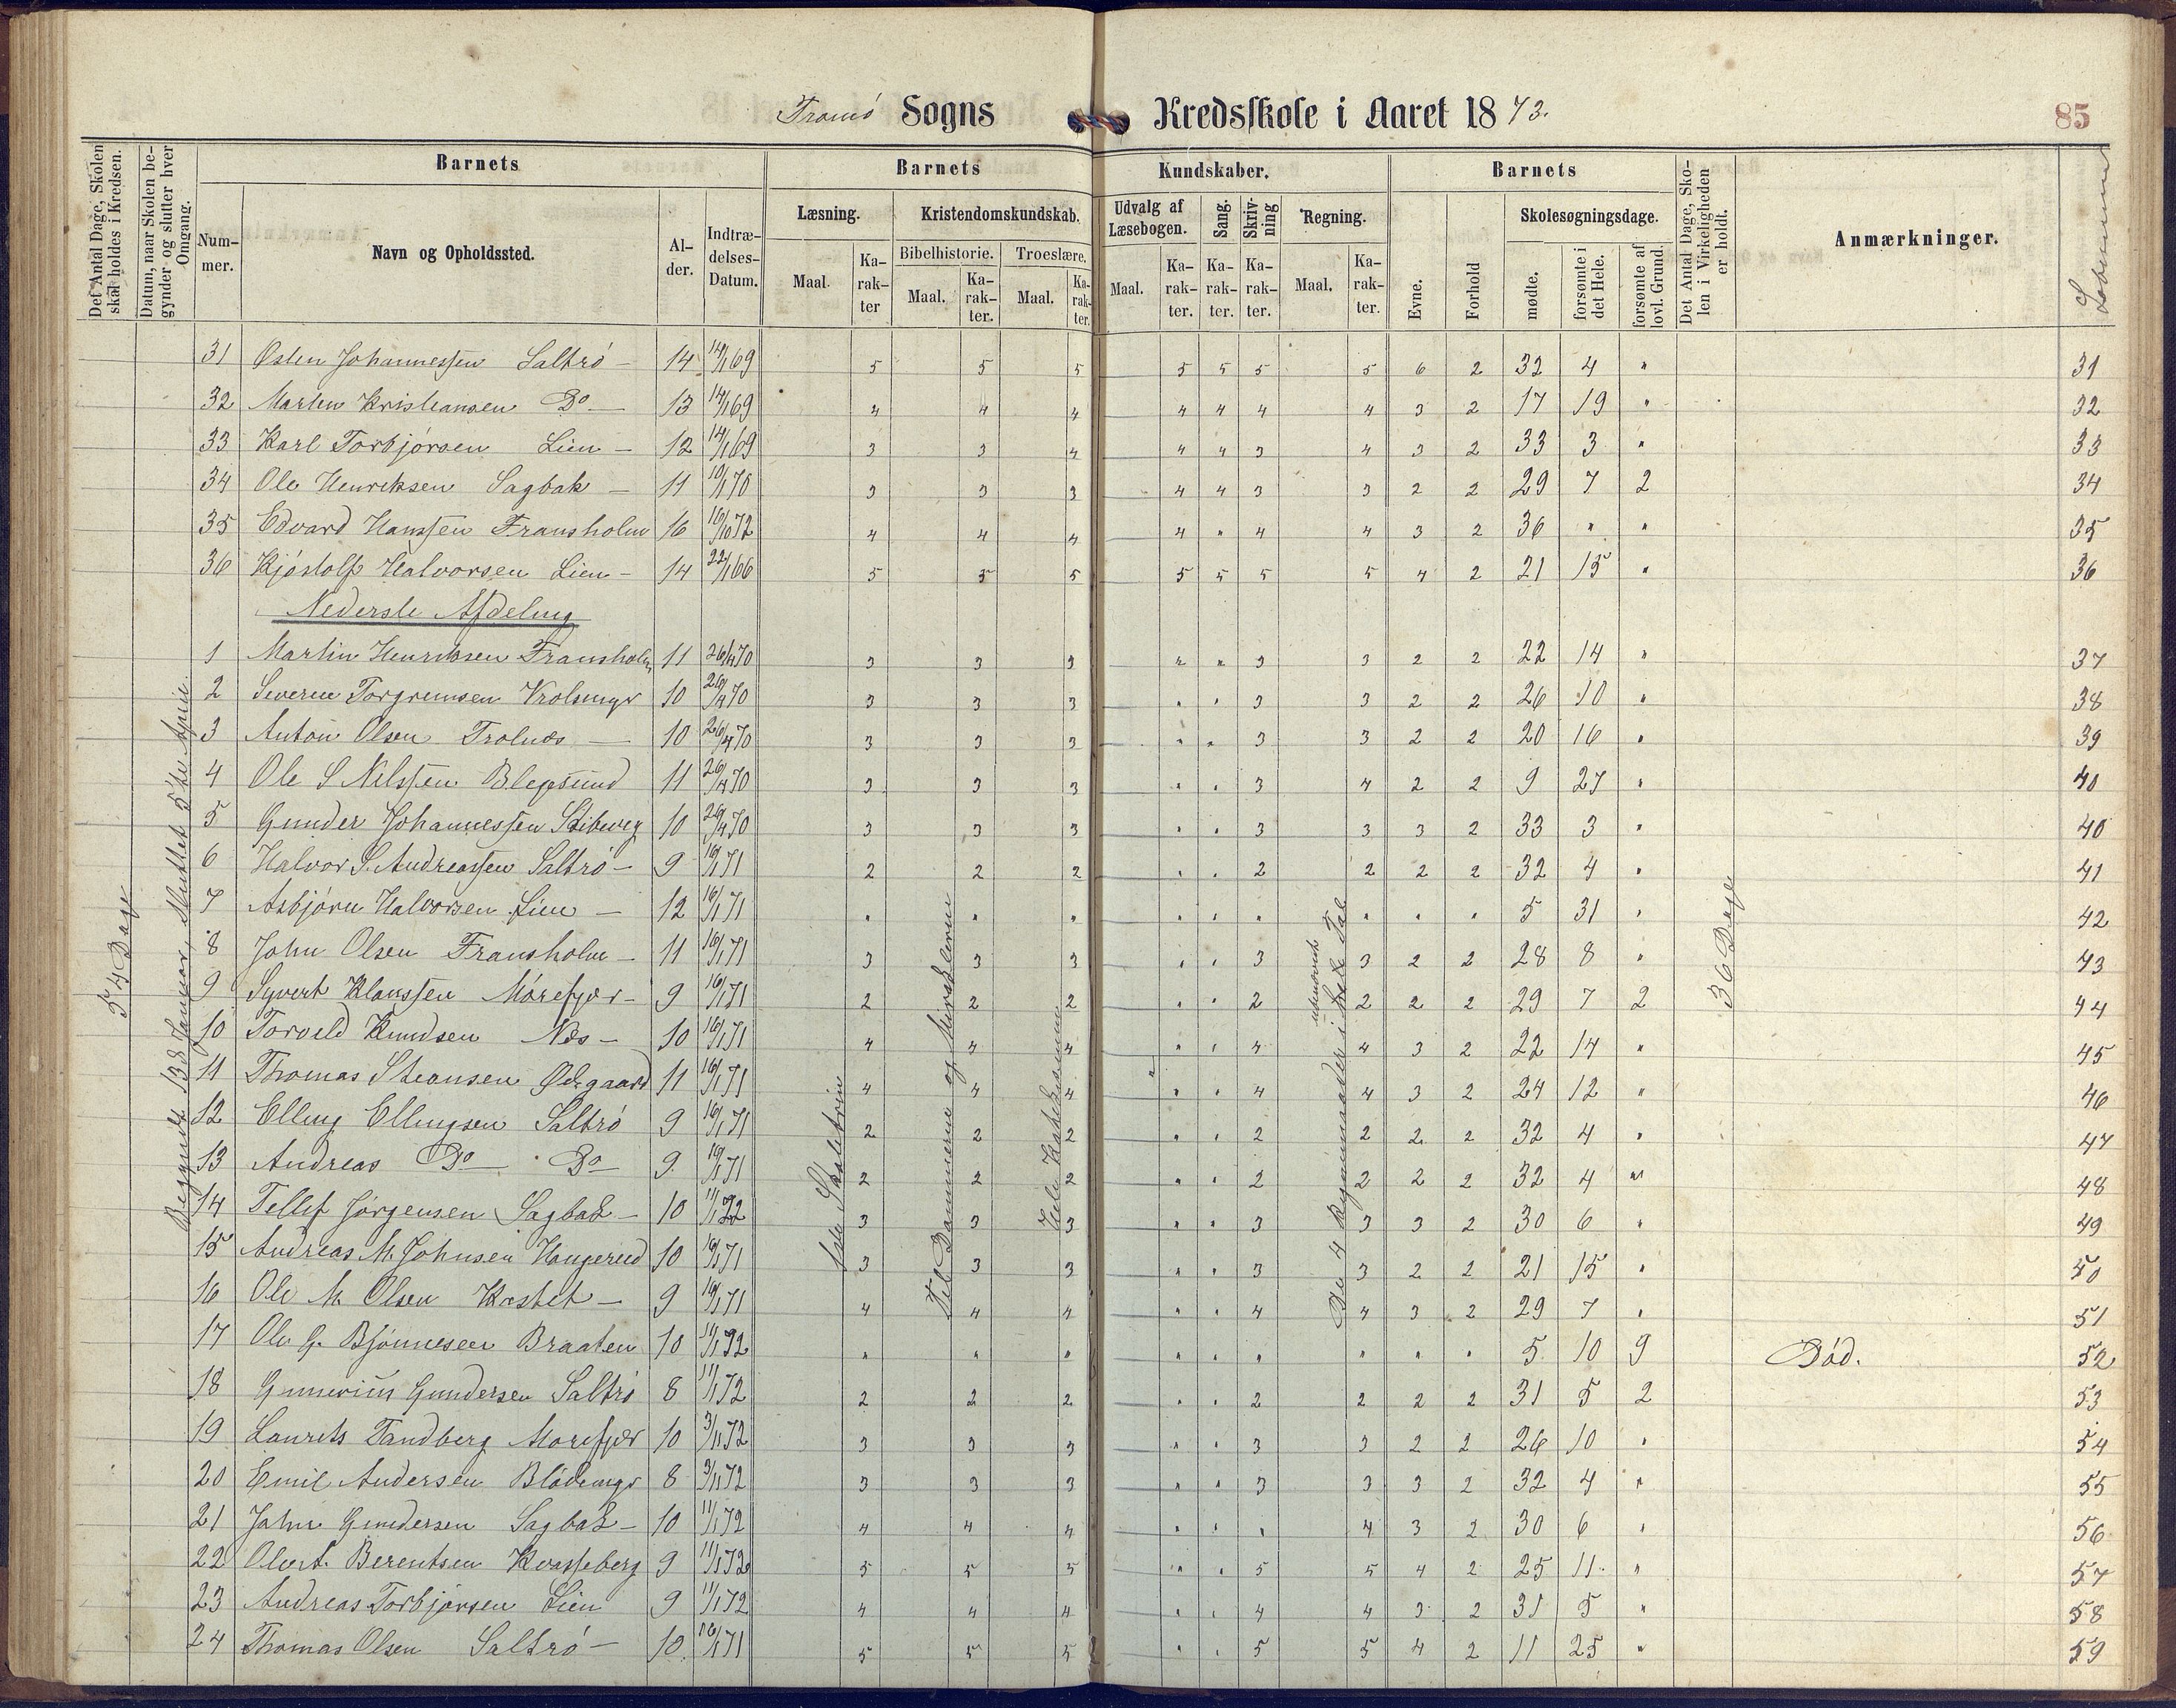 Tromö Sogns Kredsskole i Aaret 1873.
85
Det Antal Dage, Skolen skal holdes i Kredsen.
Datum, naar Skolen begynder og slutter hver Omgang.
Barnets
Nummer.
Navn og Opholdssted.
Alder.
Indtrædelses-Datum.
Barnets Kundskaber.
Læsning.
Kristendomskundskab.
Bibelhistorie.
Troeslære.
Maal.
Karakter
Maal.
Karakter.
Maal.
Karakter.
Udvalg af Læsebogen.
Sang.
Skrivning
Regning.
Maal.
Karakter.
Karakter.
Karakter.
Maal.
Karakter.
Barnets
Evne.
Forhold
Skolesøgningsdage.
mødte.
forsømte i det Hele.
forsømte af lovl. Grund.
Det Antal Dage, Skolen i Virkeligheden er holdt.
Anmærkninger.
Løbenummer
31 Østen Johannessen Saltrö – 14 14/1 69 5 5 5 5 5 5 5 6 2 32 4 " 31
32 Marten Kristiansen Do – 13 14/1 69 4 4 4 4 4 4 4 3 2 17 19 " 32
33 Karl Torbjörsen Lien – 12 14/1 69 3 3 4 4 4 3 4 3 2 33 3 " 33
34 Ole Henriksen Sagbak – 11 10/1 70 3 3 3 4 4 3 3 2 2 29 7 2 34
35 Edvard Hanssen Fransholm 16 16/10 72 4 4 4 4 " 4 4 3 2 36 " " 35
36 Kjöstolf Halvorsen Lien – 14 22/1 66 5 5 5 5 5 5 5 4 2 21 15 " 36
Nederste Afdeling
1 Martin Henriksen Fransholm 11 26/4 70 3 3 3 " " 3 3 2 2 22 14 " 37
2 Severin Torgrimsen 10 26/4 70 3 3 3 " " 3 3 2 2 26 10 " 38
3 Anton Olsen Trolnæs – 10 26/4 70 3 3 3 " " 3 3 2 2 20 16 " 39
4 Ole S Nilssen 11 26/4 70 3 3 3 " " 3 4 2 2 9 27 " 40
5 Gunder Johannessen Stibweg 10 26/4 70 3 3 3 " " 3 3 3 2 33 3 " 40
6 Halvor S. Andreassen Saltrö – 9 16/1 71 2 2 2 " " 2 2 2 2 32 4 " 41
7 Asbjörn Halvorsen Lien – 12 16/1 71 " " " " " " " " " 5 31 " 42
8 John Olsen Fransholm – 11 16/1 71 3 3 3 " " 3 3 2 2 28 8 " 43
9 Syvert Klaussen Mörefjær – 9 16/1 71 2 2 2 " " 2 2 2 2 29 7 2 44
10 Torveld Knudsen Næs – 10 16/1 71 4 4 4 " " 4 4 3 2 22 14 " 45
11 Thomas Stiansen Ødegaard 11 16/1 71 4 4 4 " " 4 4 3 2 24 12 " 46
12 Elling Ellingsen Saltrö 9 16/1 71 2 2 2 " " 2 2 2 2 32 4 " 47
13 Andreas Do Do 9 16/1 71 2 2 2 " " 2 2 2 2 32 4 " 48
14 Tellef Jörgensen Sagbak – 10 11/1 72 3 3 3 " " 3 3 3 2 30 6 " 49
15 Andreas M. Johnsen Haugerud 10 16/1 71 3 3 3 " " 3 3 2 2 21 15 " 50
16 Ole M. Olsen Kastet – 9 16/1 71 4 4 4 " " 4 4 3 2 29 7 " 51
17 Ole G. Bjönnesen Braaten 10 11/1 72 " " " " " " " " " 5 10 9 Död. 52
18 Gunerius Gundersen Saltrö 8 11/1 72 2 2 2 " " 2 2 2 2 31 5 2 53
19 Laurits Tandberg Morefjær 10 3/11 72 3 3 3 " " 3 3 2 2 26 10 " 54
20 Emil Andersen Blödemyr 8 3/11 72 3 3 3 " " 3 3 3 2 32 4 " 55
21 John Gundersen Sagbak – 10 11/1 72 4 4 4 " " " 4 3 2 30 6 " 56
22 Olert. Berentsen Kvasseberg 9 11/1 72 5 5 5 " " 5 5 4 2 25 11 " 57
23 Andreas Torbjörsen Lien 9 11/1 72 4 4 4 " " 4 4 3 2 31 5 " 58
24 Thomas Olsen Saltrö – 10 16/1 71 5 5 5 " " 5 5 4 2 11 25 " 59
54 Dage
Begyndt 13de Januar, sluttet 5te April.
Til Dommerne og
Hele Katekismen
De 4 Regningsmaader i hele Tal
36 Dage